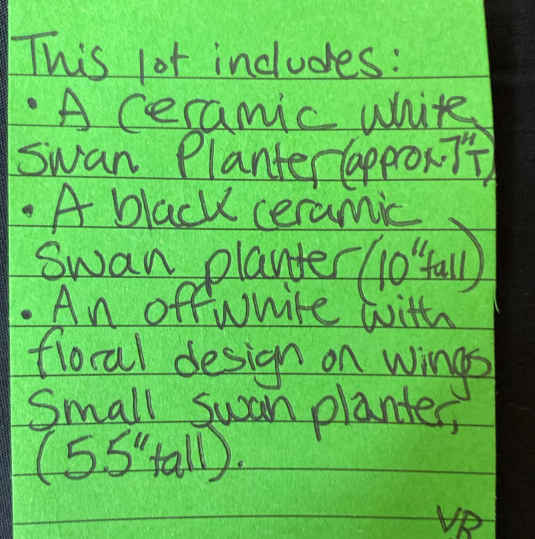 This lot includes:
• A Ceramic white
Swan Planter (approx. 7"T)
• A black ceramic
Swan planter (10" tall)
• An offwhite with
floral design on wings
Small swan planter,
(5.5" tall).
VR